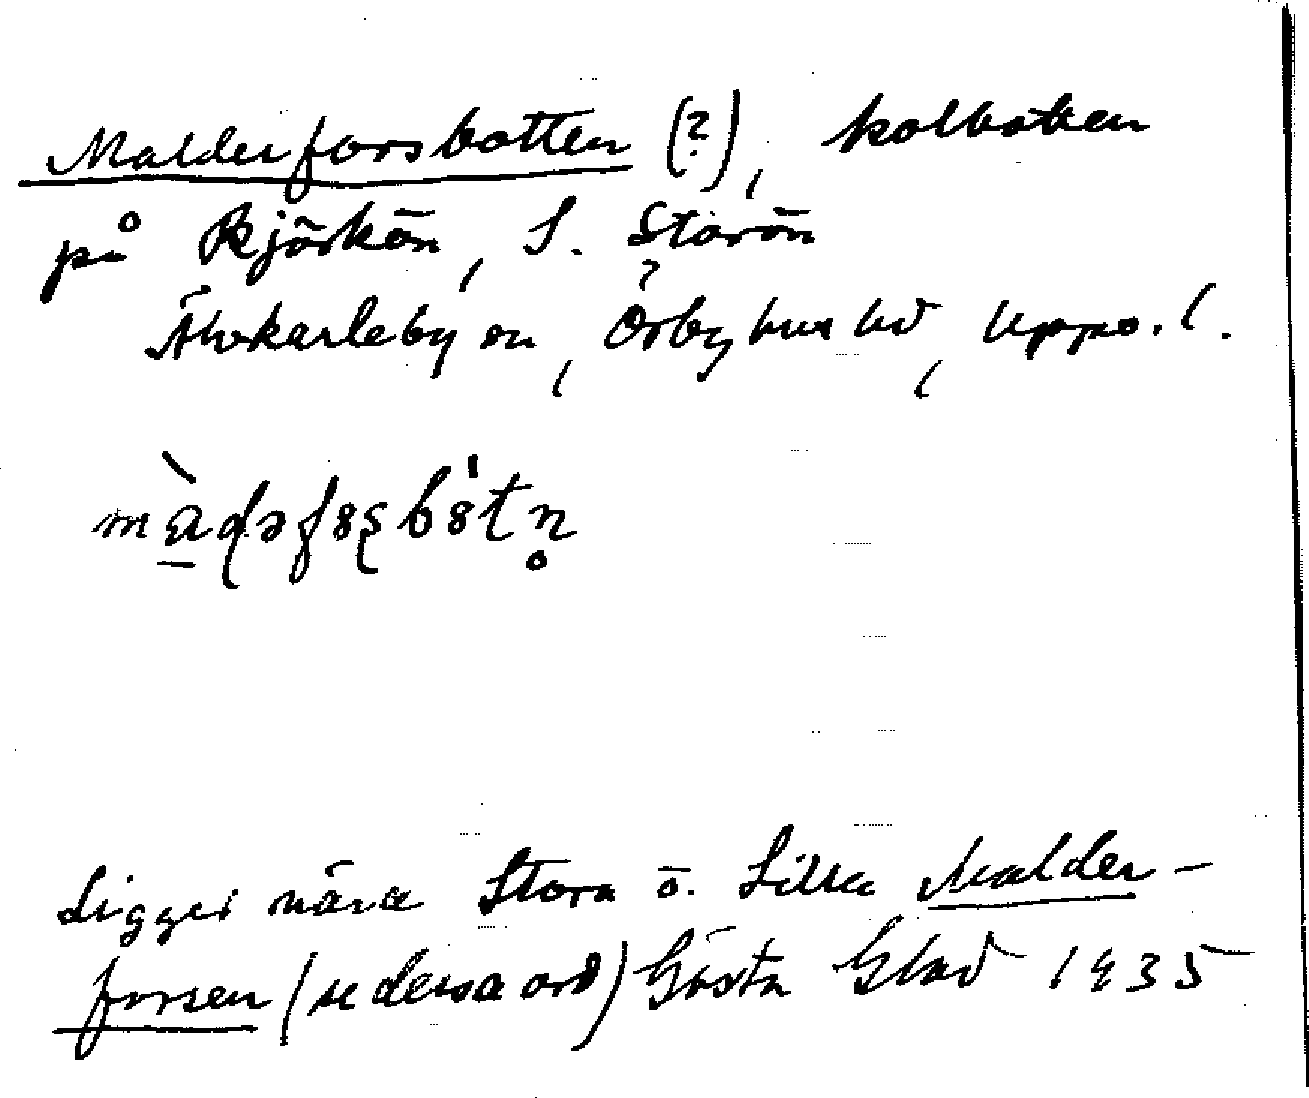 Malderforsbotten (?), kolbotten
på Björkön, S. Storön
?
Älvkarleby sn, Örbyhus hd, Upps. l.
Ligger nära Stora o. Lilla Malder-
forsen (se dessa ord) Gösta Glad 1935